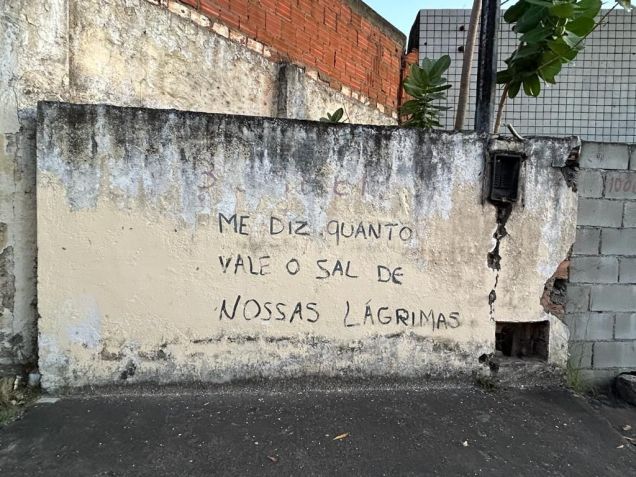 ME DIZ QUANTO
VALE O SAL DE
NOSSAS LÁGRIMAS